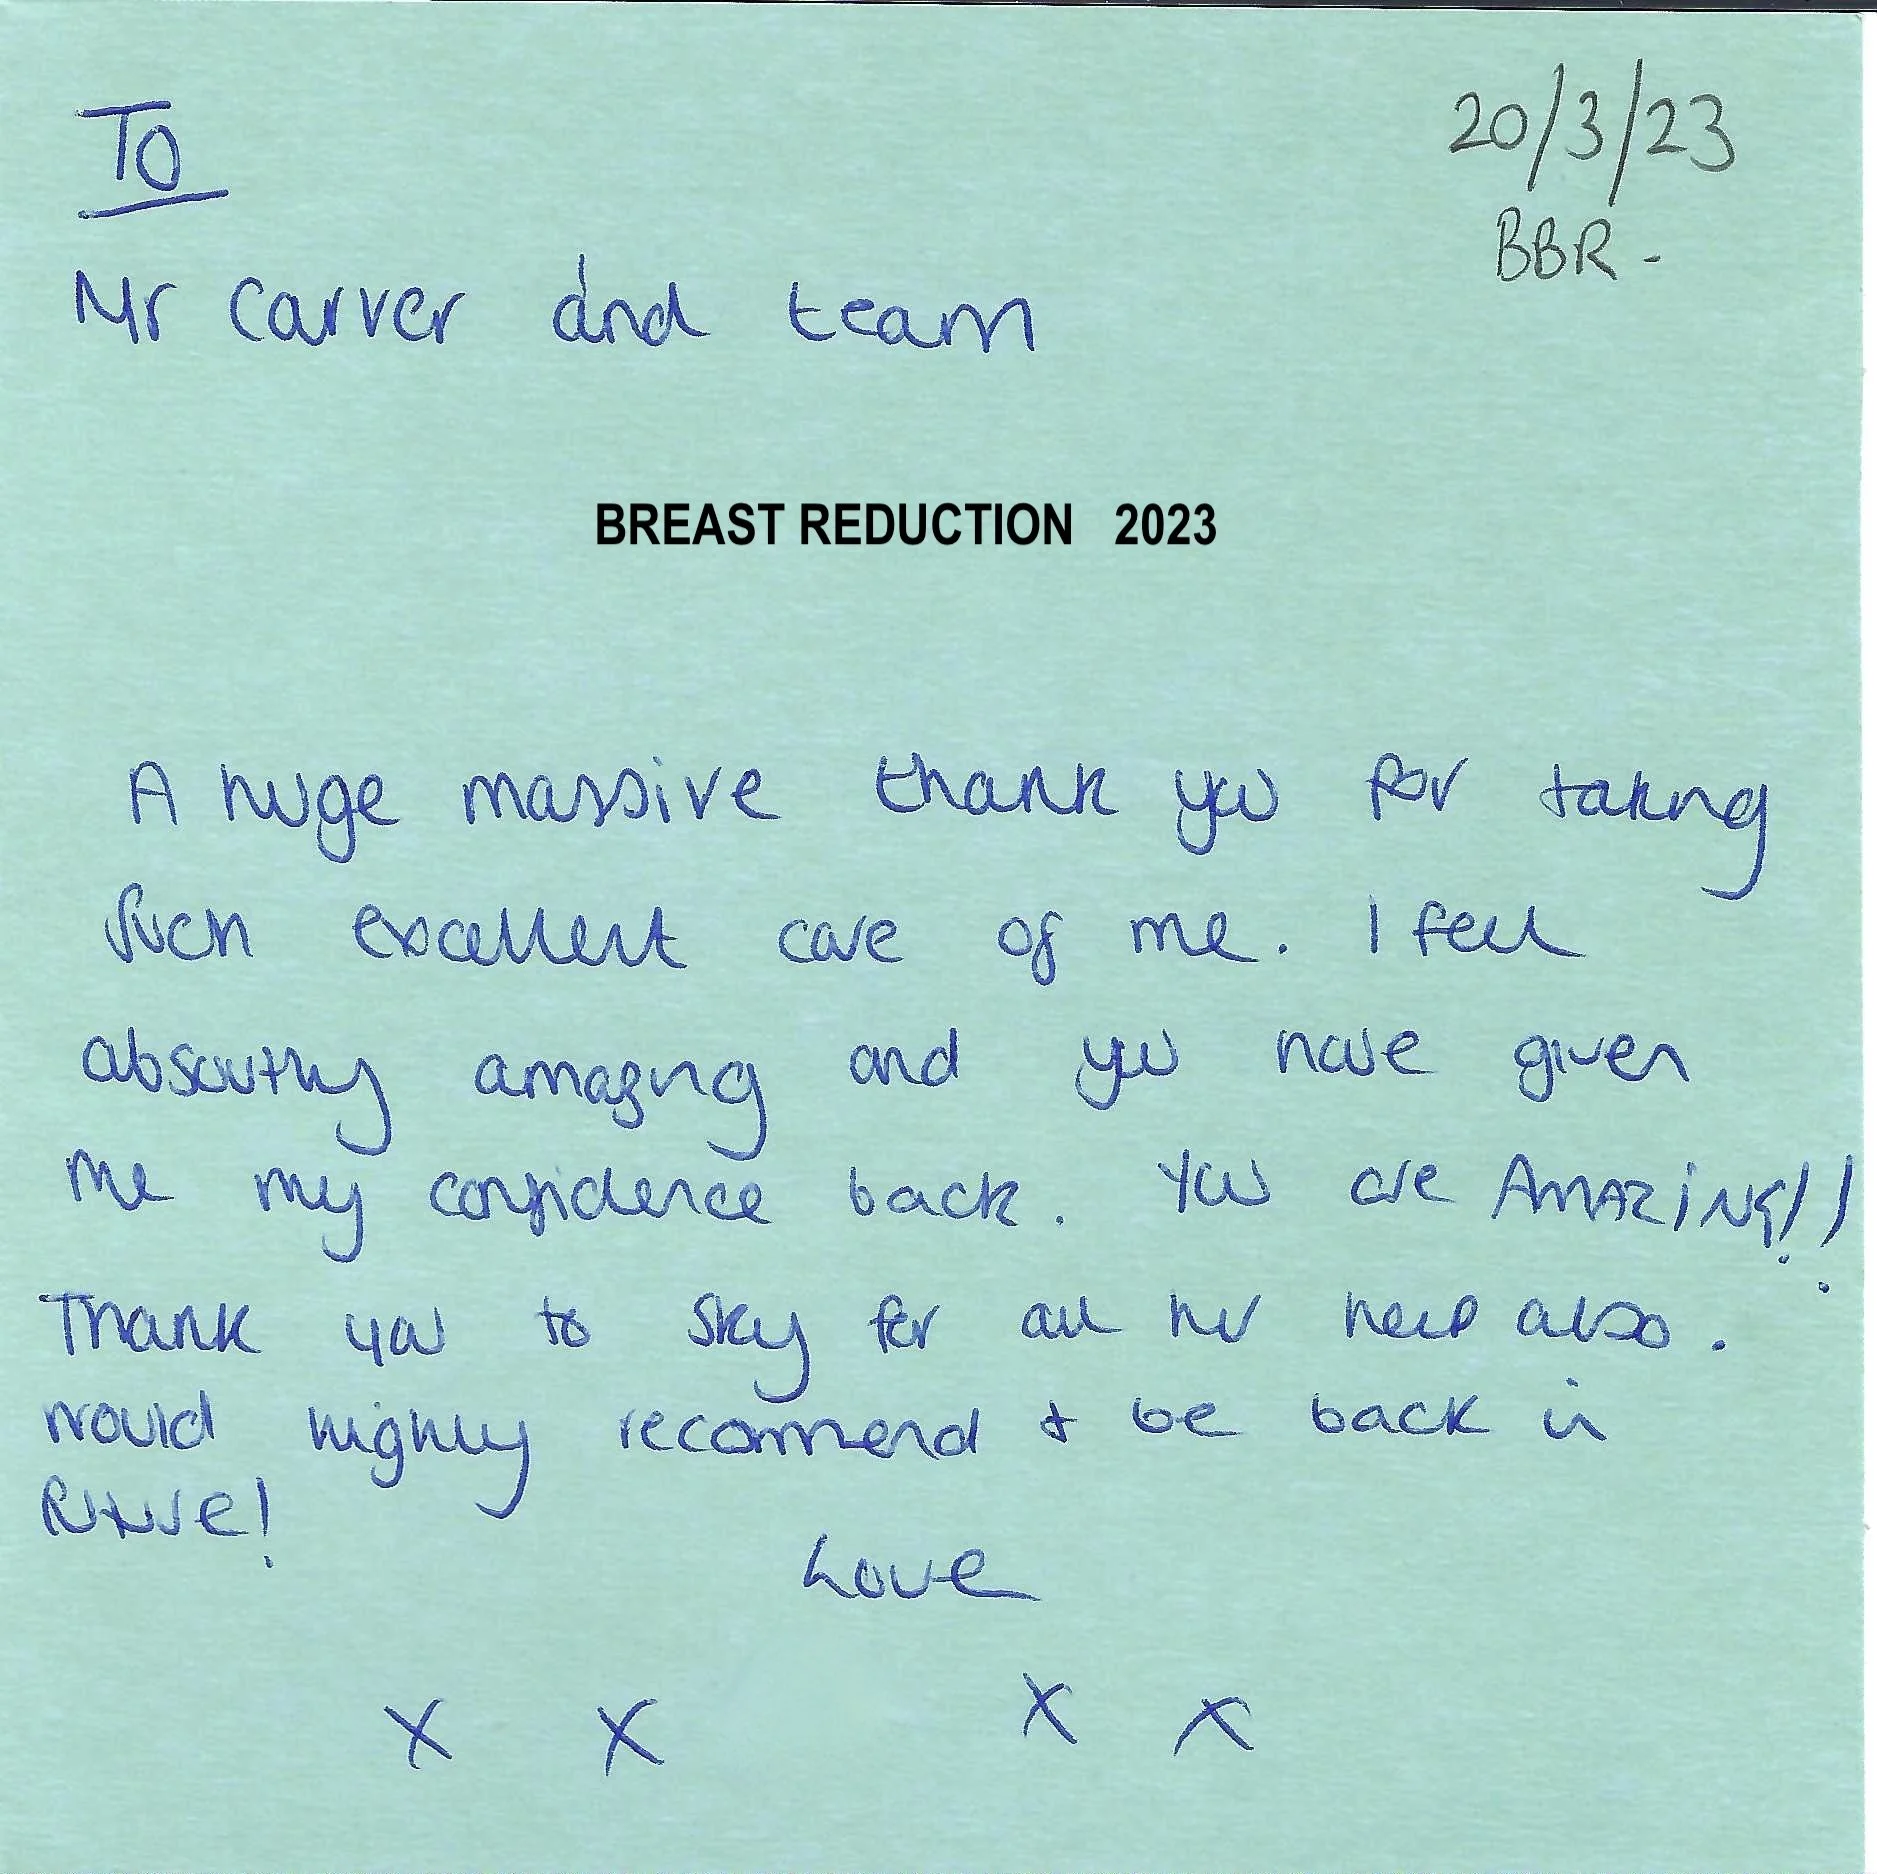 To
20/3/23
BBR -
Mr Carver and team
BREAST REDUCTION 2023
A huge massive thank you for taking
such excellent care of me. I feel
absoutley amazing and you have given
me my confidence back. You are AMAZING!!
Thank you to Sky for all her help also.
would highly recommend & be back in
future!
Love
x x x x